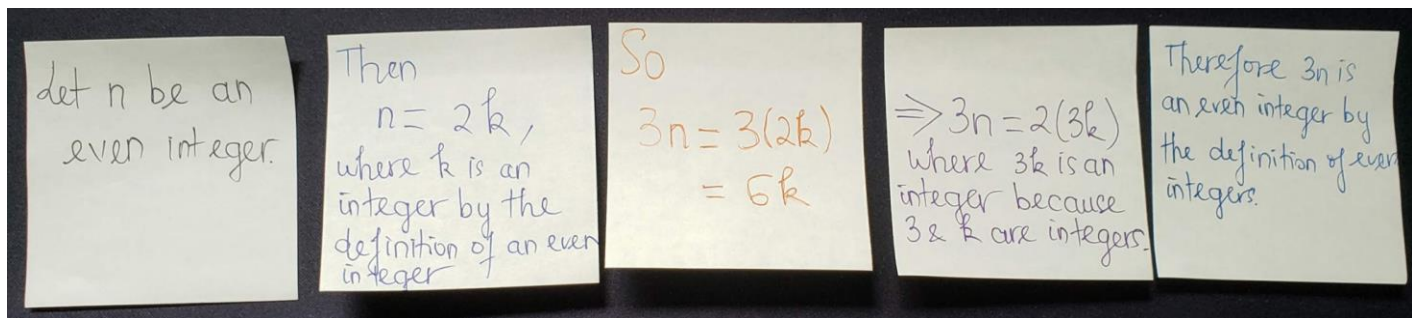 Let n be an
even integer.
Then
n = 2k,
where k is an
integer by the
definition of an even
integer
So
3n = 3(2k)
= 6k
⇒ 3n = 2(3k)
where 3k is an
integer because
3 & k are integers.
Therefore 3n is
an even integer by
the definition of even
integers.